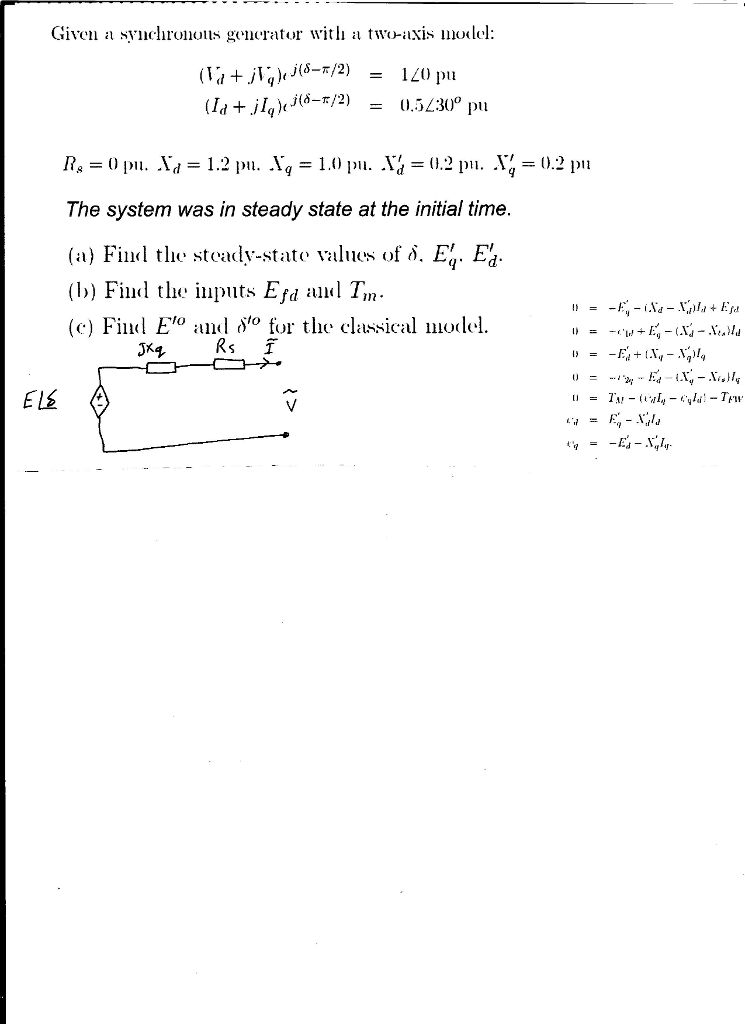 Given a synchronous generator with a two-axis model:
(V_d + jV_q)e^{j(δ−π/2)} = 1∠0 pu
(I_d + jI_q)e^{j(δ−π/2)} = 0.5∠30° pu
R_s = 0 pu. X_d = 1.2 pu. X_q = 1.0 pu. X'_d = 0.2 pu. X'_q = 0.2 pu
The system was in steady state at the initial time.
(a) Find the steady-state values of δ. E'_q. E'_d.
(b) Find the inputs E_{fd} and T_m.
(c) Find E'^o and δ'^o for the classical model.
0 = −E'_q − (X_d − X'_d)I_d + E_{fd}
0 = −ψ_{1d} + E'_q − (X'_d − X_{ℓs})I_d
0 = −E'_d + (X_q − X'_q)I_q
0 = −ψ_{2q} − E'_d − (X'_q − X_{ℓs})I_q
0 = T_M − (ψ_dI_q − ψ_qI_d) − T_{FW}
ψ_d = E'_q − X'_dI_d
ψ_q = −E'_d − X'_qI_q.
JXq Rs Ĩ
E∠δ + − Ṽ